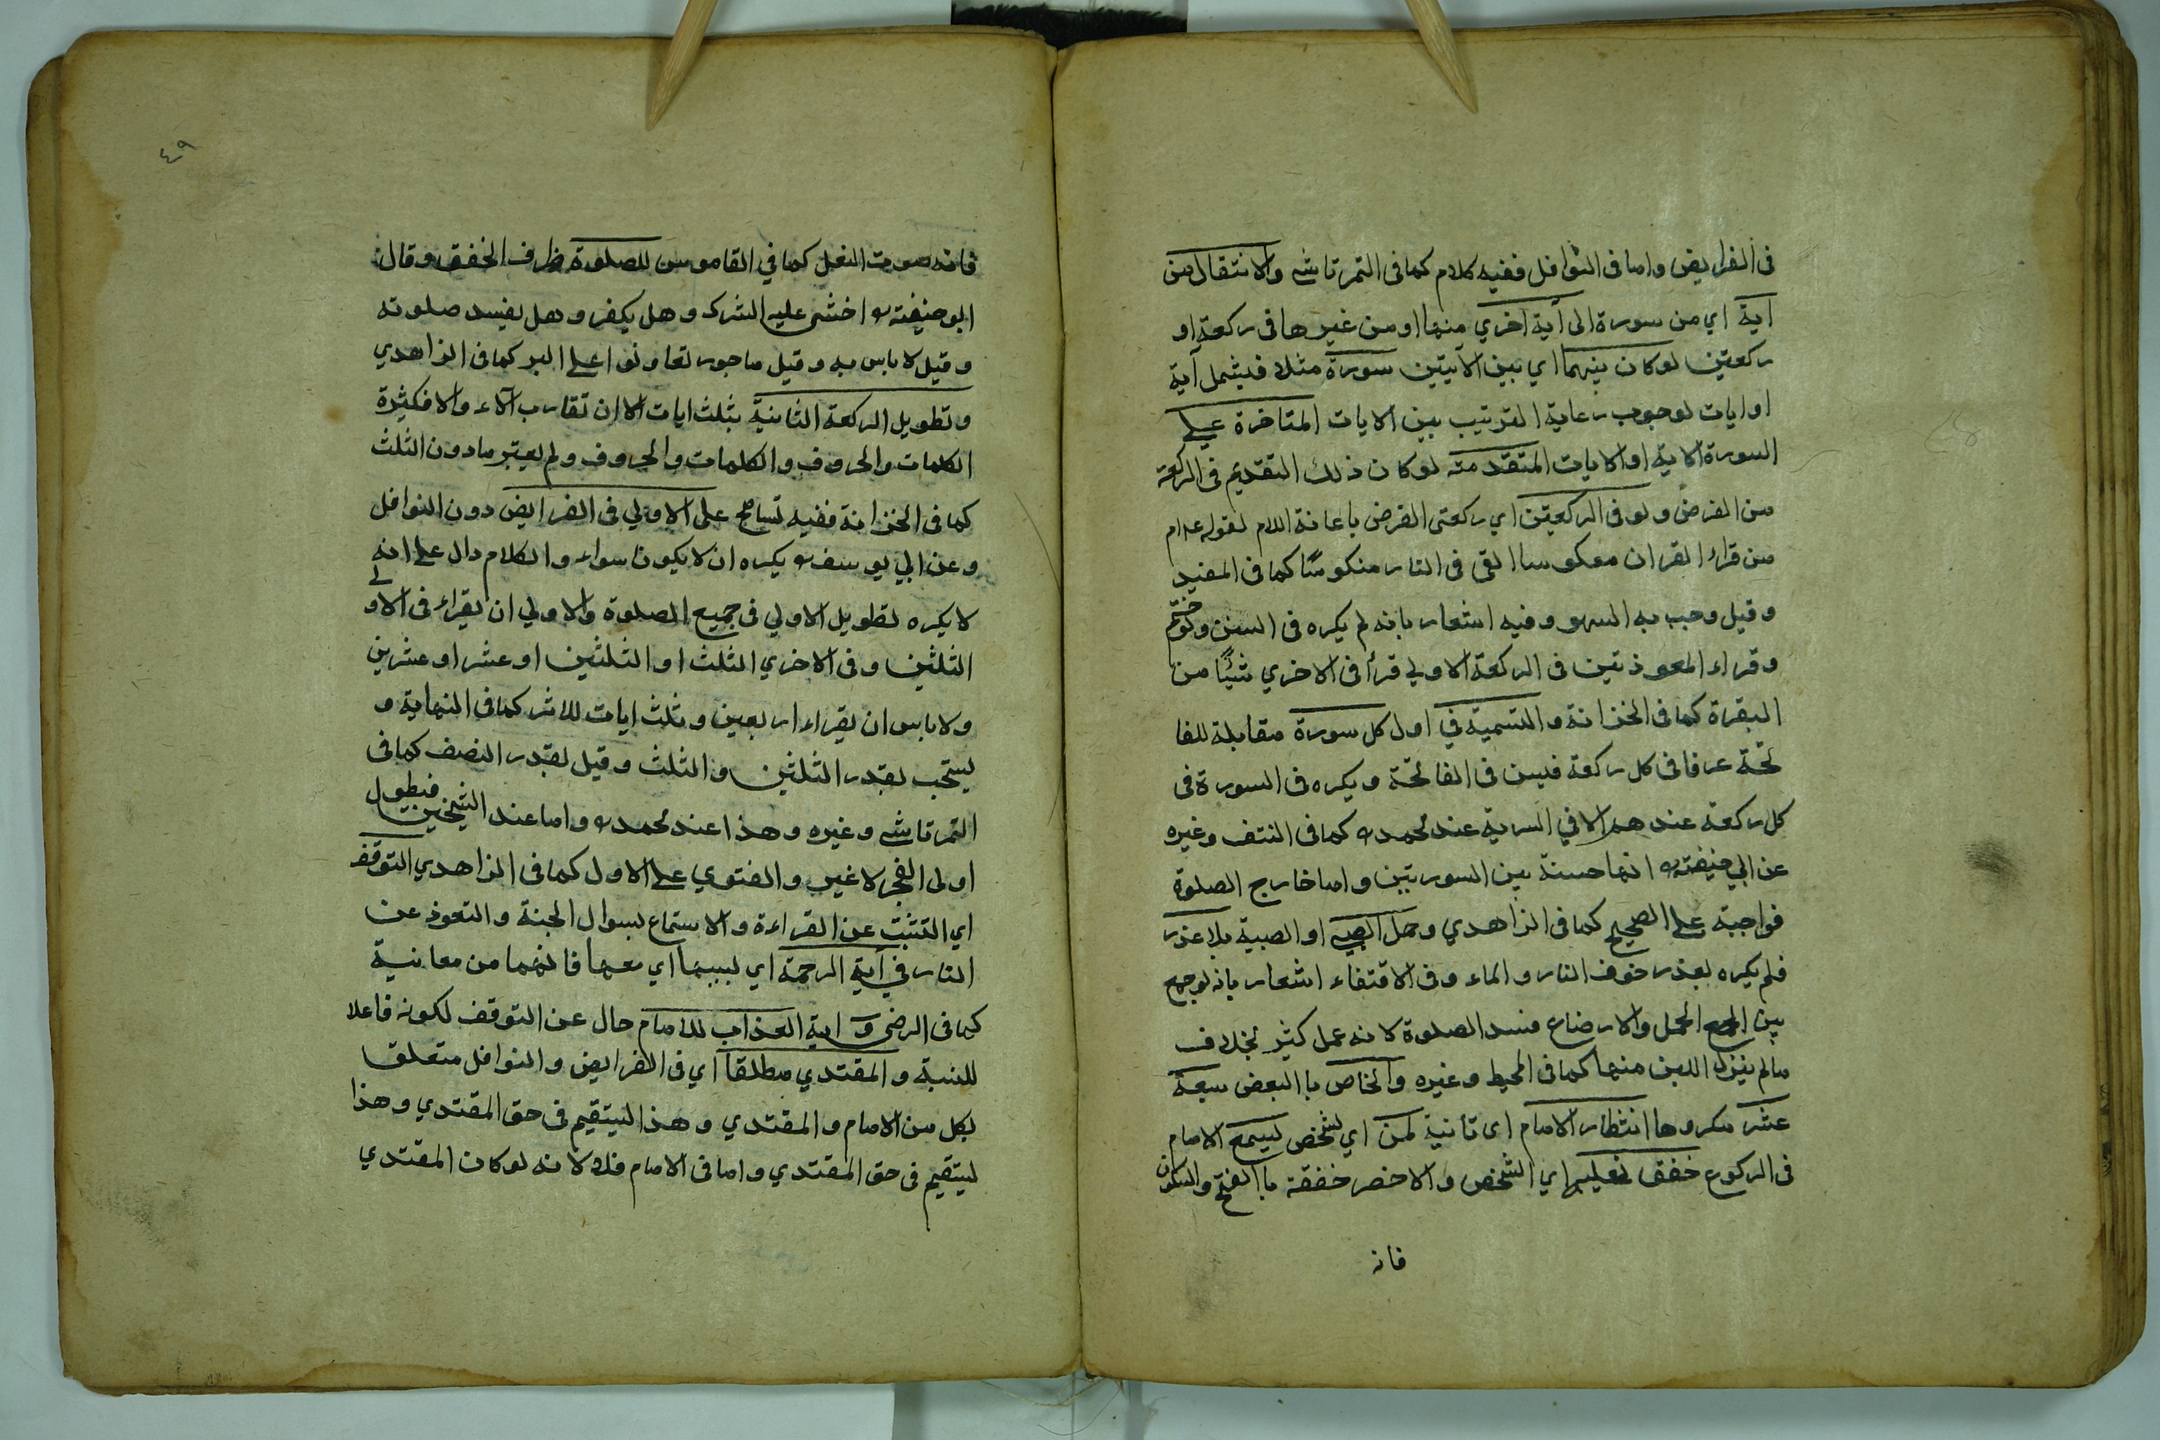 فى الفرايض واما فى النوافل ففيه كلام كما فى التمرتاشى والانتقال من
اية اي من سورة الى آية اخري منها او من غيرها فى ركعة او
ركعتين لو كان بينهما اي بين الآيتين سورة مثلا فيشمل آية
او ايات لوجوب رعاية الترتيب بين الايات المتاخرة على
السورة الاية او الايات المتقدمة لو كان ذلك التقديم فى الركعة
من الفرض ولو فى الركعتين اي ركعتى الفرض باعانة اللام لقوله
من قراء القران معكوسا القى فى النار منكوسًا كما فى المفيد
وقيل وجب به السهو وفيه اشعار بانه لم يكره فى السنن ولو ختم
وقراء المعوذتين فى الركعة الاولي قرأ فى الاخري شيئًا من
البقرة كما فى الخزانة والتسمية في اول كل سورة مقابلة للفا
تحة عرفا فى كل ركعة فيسن فى الفاتحة ويكره فى السورة فى
كل ركعة عندهم الا في السرية عند محمد كما فى النتف وغيره
عن ابي حنيفة انها حسنة بين السورتين واما خارج الصلوة
فواجبة على الصحيح كما فى الزاهدي وحمل الصبي او الصبية بلا عذر
فلم يكره بعذر خوف النار والماء وفى الاقتفاء اشعار بانه لو جمع
بين الجمع الحمل والارضاع فسد الصلوة لانه عمل كثير بخلاف
مالم ينزل اللبن منها كما فى المحيط وغيره والخاص بالبعض سبعة
عشر مكروها انتظار الامام اى تانية لمن اي لشخص ليسمع الامام
فى الركوع خفق نعليه اي الشخص والاخصر خفقة بالفتح والسكون
فانه
٤٩
فانه صوت النعل كما في القاموس للصلوة ظرف الخفق وقال
ابو حنيفة اخشى عليه الشرك وهل يكفر وهل يفسد صلوته
وقيل لا باس به وقيل ماجور تعاونوا على البر كما فى الزاهدي
وتطويل الركعة الثانية بثلث ايات الا ان تقارب الآء والا فكثيرة
الكلمات والحروف والكلمات والحروف ولم يعتبر ما دون الثلث
كما فى الخزانة ففيه تسامح على الاولي فى الفرايض دون النوافل
وعن ابي يوسف يكره ان لا يكون سواء والكلام دال على انه
لا يكره تطويل الاولي فى جميع الصلوة والاولي ان يقراء فى الاولے
الثلثين وفى الاخري الثلث او الثلثين او عشر او عشرين
ولا باس ان يقراء اربعين وثلث ايات للاثر كما فى النهاية و
يستحب بقدر الثلثين والثلث وقيل بقدر النصف كما فى
التمرتاشي وغيره وهذا عند محمد واما عند الشيخين فيطول
اولى الفجر لا غير والفتوي على الاول كما فى الزاهدي التوقف
اي التثبت عن القراءة والاستماع لسوال الجنة والتعوذ عن
النار في آية الرحمة اي لسببها اي معها فانهما من معانية
كما فى الرضى و اية العذاب للامام حال عن التوقف لكونه فاعلا
للنسبة والمقتدي مطلقا اي فى الفرايض والنوافل متعلق
بكل من الامام والمقتدي وهذا ليتقيم فى حق المقتدي وهذا
ليتقيم فى حق المقتدي واما فى الامام فلا لانه لو كان المقتدي